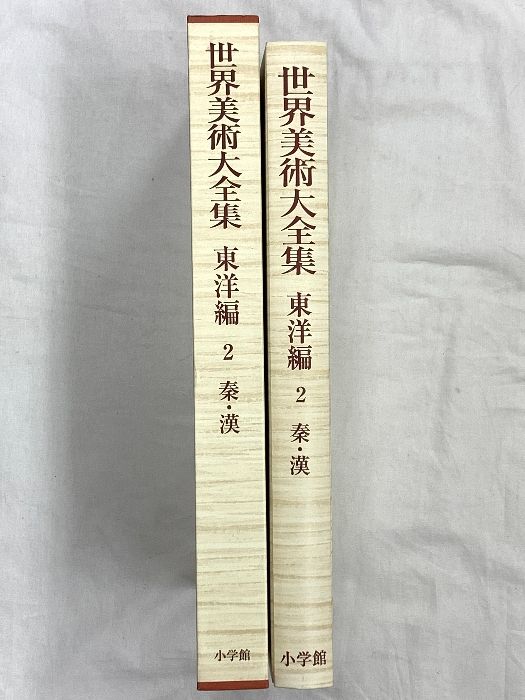 世界美術大全集 東洋編 2 秦・漢
小学館
世界美術大全集 東洋編 2 秦・漢
小学館